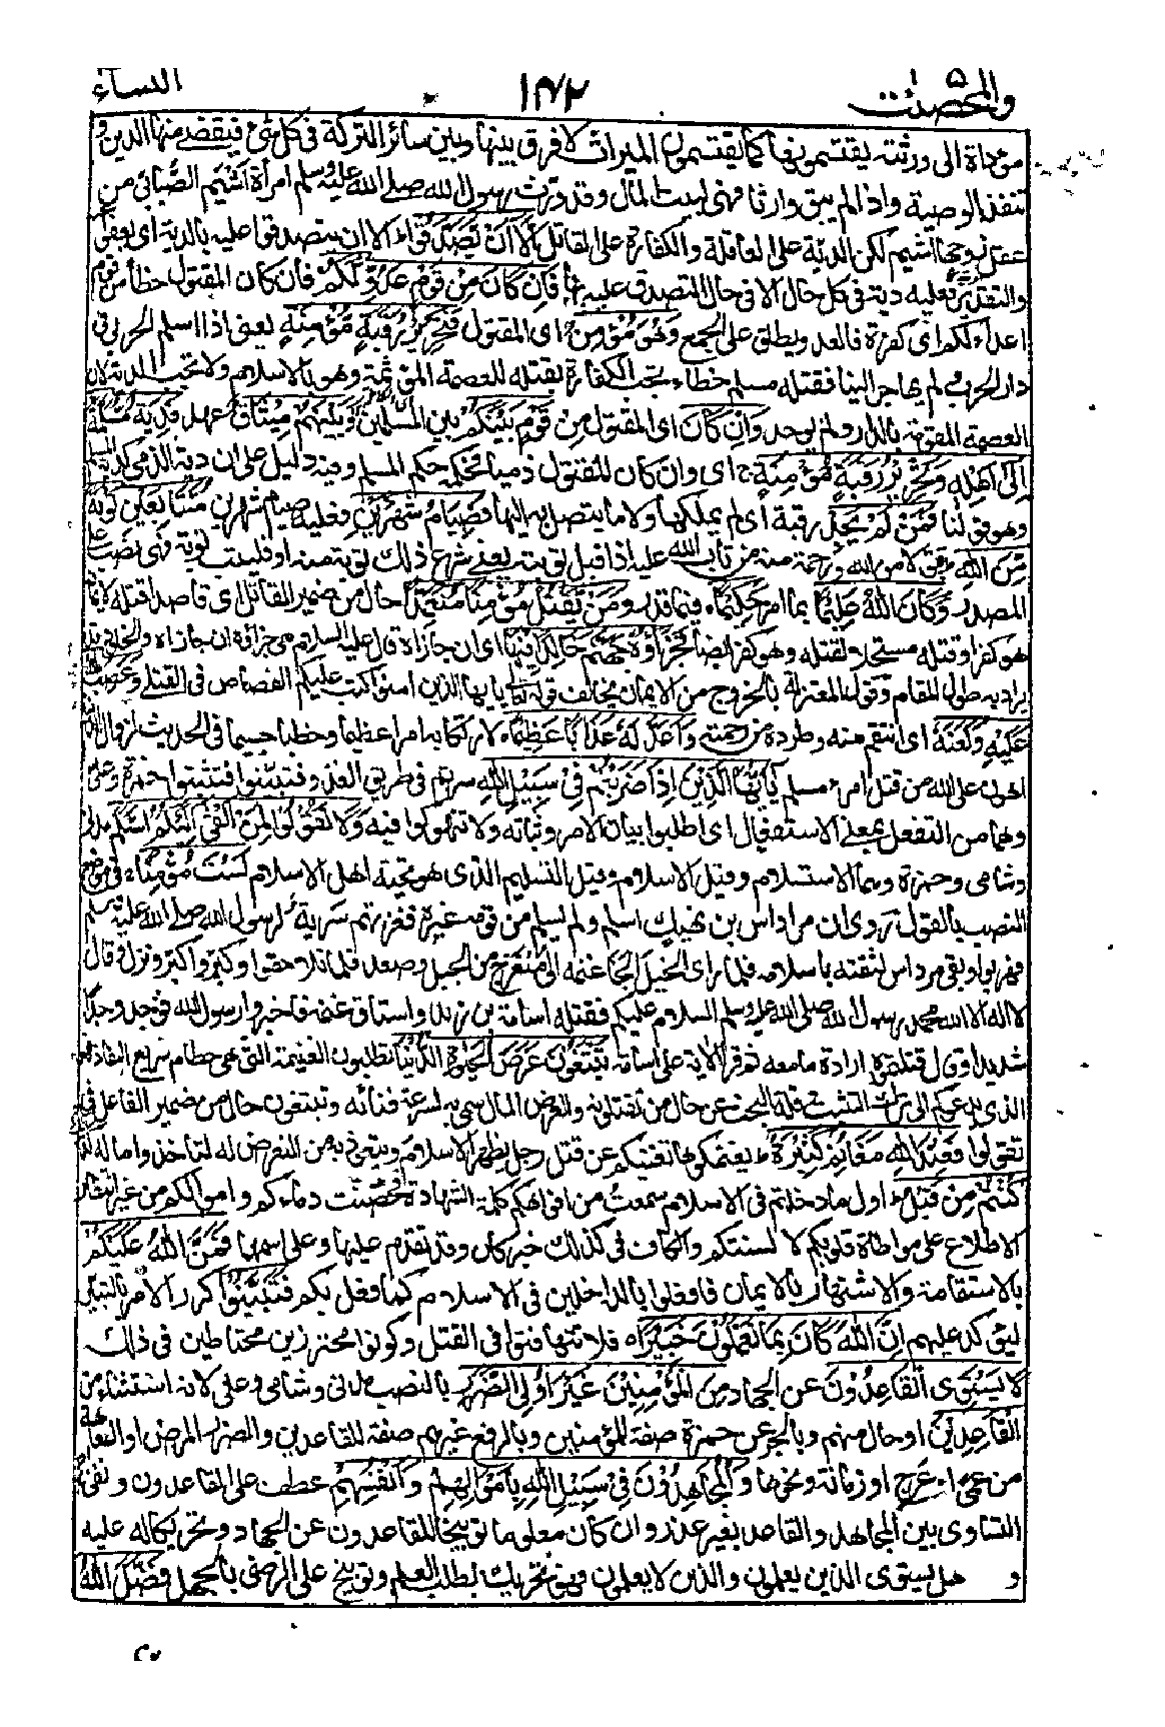 والمحصنٰت ٥
١٧٢
النساء
مؤداة الى ورثته يقتسمونها كما يقتسمون الميراث لا فرق بينها وبين سائر التركة فى كل شئ فيقضى منها الدين و
تنفذ الوصية واذا لم يبق وارثا فهى لبيت المال وقد ورّث رسول الله صلى الله عليه وسلم امرأة اشيم الضبابى من
عقل زوجها اشيم لكن الدية على العاقلة والكفارة على القاتل اِلَّا اَنْ يَّصَّدَّقُوْا الا ان يتصدقوا عليه بالدية اى يعفو
والتقدير فعليه دية فى كل حال الا فى حال التصدق عليه بها فَاِنْ كَانَ مِنْ قَوْمٍ عَدُوٍّ لَّكُمْ فان كان المقتول خطأ من قوم
اعداء لكم اى كفرة فالعدو يطلق على الجمع وَهُوَ مُؤْمِنٌ اى المقتول فَتَحْرِيْرُ رَقَبَةٍ مُّؤْمِنَةٍ يعنى اذا اسلم الحربى فى
دار الحرب ولم يهاجر الينا فقتله مسلم خطاء تجب الكفارة بقتله للعصمة المؤثمة وهو بالاسلام ولا تجب الدية لان
العصمة المقومة بالدار ولم توجد وَاِنْ كَانَ اى المقتول مِنْ قَوْمٍ بَيْنَكُمْ بين المسلمين وَبَيْنَهُمْ مِّيْثَاقٌ عهد فَدِيَةٌ مُّسَلَّمَةٌ
اِلٰى اَهْلِهٖ وَتَحْرِيْرُ رَقَبَةٍ مُّؤْمِنَةٍ ج اى وان كان المقتول ذميا فحكمه حكم المسلم وفيه دليل على ان دية الذمى كدية المسلم
وهو قولنا فَمَنْ لَّمْ يَجِدْ رقبة اى لم يملكها ولا ما يتوصل به اليها فَصِيَامُ شَهْرَيْنِ فعليه صيام شهرين مُتَتَابِعَيْنِ تَوْبَةً
مِّنَ اللهِ قبولا من الله ورحمة منه من تاب الله عليه اذا قبل توبته يعنى شرع ذلك توبة منه او فليتب توبة فهى نصب على
المصدر وَكَانَ اللهُ عَلِيْمًا بما امر حَكِيْمًا فيما قدر وَمَنْ يَّقْتُلْ مُؤْمِنًا مُّتَعَمِّدًا حال من ضمير القاتل اى قاصدا قتله لايمانه
هو كفر او قتله مستحلا لقتله وهو كفر ايضا فَجَزَاؤُهٗ جَهَنَّمُ خَالِدًا فِيْهَا اى ان جازاه قال عليه السلام هى جزاؤه ان جازاه والخلود قد
يراد به طول المقام وقول المعتزلة بالخروج من الايمان يخالف قوله تعالى يايها الذين امنوا كتب عليكم القصاص فى القتلى وَغَضِبَ اللهُ
عَلَيْهِ وَلَعَنَهٗ اى انتقم منه وطرده من رحمته وَاَعَدَّ لَهٗ عَذَابًا عَظِيْمًا لارتكابه امرا عظيما وخطبا جسيما فى الحديث لزوال الدنيا
اهون على الله من قتل امرء مسلم يٰٓاَيُّهَا الَّذِيْنَ اِذَا ضَرَبْتُمْ فِيْ سَبِيْلِ اللهِ سرتم فى طريق الغزو فَتَبَيَّنُوْا فتثبتوا حمزة وعلى
وهما من التفعل بمعنى الاستفعال اى اطلبوا بيان الامر وثباته ولا تتهوكوا فيه وَلَا تَقُوْلُوْا لِمَنْ اَلْقٰٓى اِلَيْكُمُ السَّلٰمَ مدنى
وشامى وحمزة وهما الاستسلام وقيل الاسلام وقيل التسليم الذى هو تحية اهل الاسلام لَسْتَ مُؤْمِنًا فى موضع
النصب بالقول روى ان مرداس بن نهيك اسلم ولم يسلم من قومه غيره فغزتهم سرية لرسول الله صلى الله عليه وسلم
فهربوا وبقى مرداس لثقته باسلامه فلما راى الخيل الجأ غنمه الى منعرج من الجبل وصعد فلما تلاحقوا وكبروا كبر ونزل وقال
لا اله الا الله محمد رسول الله صلى الله عليه وسلم السلام عليكم فقتله اسامة بن زيد واستاق غنمه فاخبروا رسول الله فوجد وجدا
شديدا وقال قتلتموه ارادة ما معه ثم قرأ الاية على اسامة تَبْتَغُوْنَ عَرَضَ الْحَيٰوةِ الدُّنْيَا تطلبون الغنيمة التى هى حطام سريع النفاد فهو
الذى يدعوكم الى ترك التثبت وقلة البحث عن حال من تقتلونه والعرض المال سمى به لسرعة فنائه وتبتغون حال من ضمير الفاعل فى
تقولوا فَعِنْدَ اللهِ مَغَانِمُ كَثِيْرَةٌ ط يغنمكموها تغنيكم عن قتل رجل يظهر الاسلام ويتعوذ به من التعرض له لتاخذوا ماله كَذٰلِكَ
كُنْتُمْ مِّنْ قَبْلُ اول ما دخلتم فى الاسلام سمعت من افواهكم كلمة الشهادة فحصنت دماءكم واموالكم من غير انتظار
الاطلاع على مواطاة قلوبكم لالسنتكم والكاف فى كذلك خبر كان وقد تقدم عليها وعلى اسمها فَمَنَّ اللهُ عَلَيْكُمْ
بالاستقامة والاشتهار بالايمان فافعلوا بالداخلين فى الاسلام كما فعل بكم فَتَبَيَّنُوْا كرر الامر بالتبين
ليؤكد عليهم اِنَّ اللهَ كَانَ بِمَا تَعْمَلُوْنَ خَبِيْرًا ٥ فلا تتهافتوا فى القتل وكونوا محترزين محتاطين فى ذلك
لَا يَسْتَوِى الْقَاعِدُوْنَ عن الجهاد مِنَ الْمُؤْمِنِيْنَ غَيْرُ اُولِى الضَّرَرِ بالنصب مدنى وشامى وعلى لانه استثناء من
القاعدين او حال منهم وبالجر عن حمزة صفة للمؤمنين وبالرفع غيرهم صفة للقاعدين والضرر المرض او العاهة
من عمى او عرج او زمانة ونحوها وَالْمُجَاهِدُوْنَ فِيْ سَبِيْلِ اللهِ بِاَمْوَالِهِمْ وَاَنْفُسِهِمْ عطف على القاعدون ونفى
التساوى بين المجاهد والقاعد بغير عذر وان كان معلوما توبيخا للقاعدون عن الجهاد وتحريكا له عليه
و هل يستوى الذين يعلمون والذين لا يعلمون فهو تحريك لطلب العلم وتوبيخ على الرضى بالجهل فَضَّلَ اللهُ